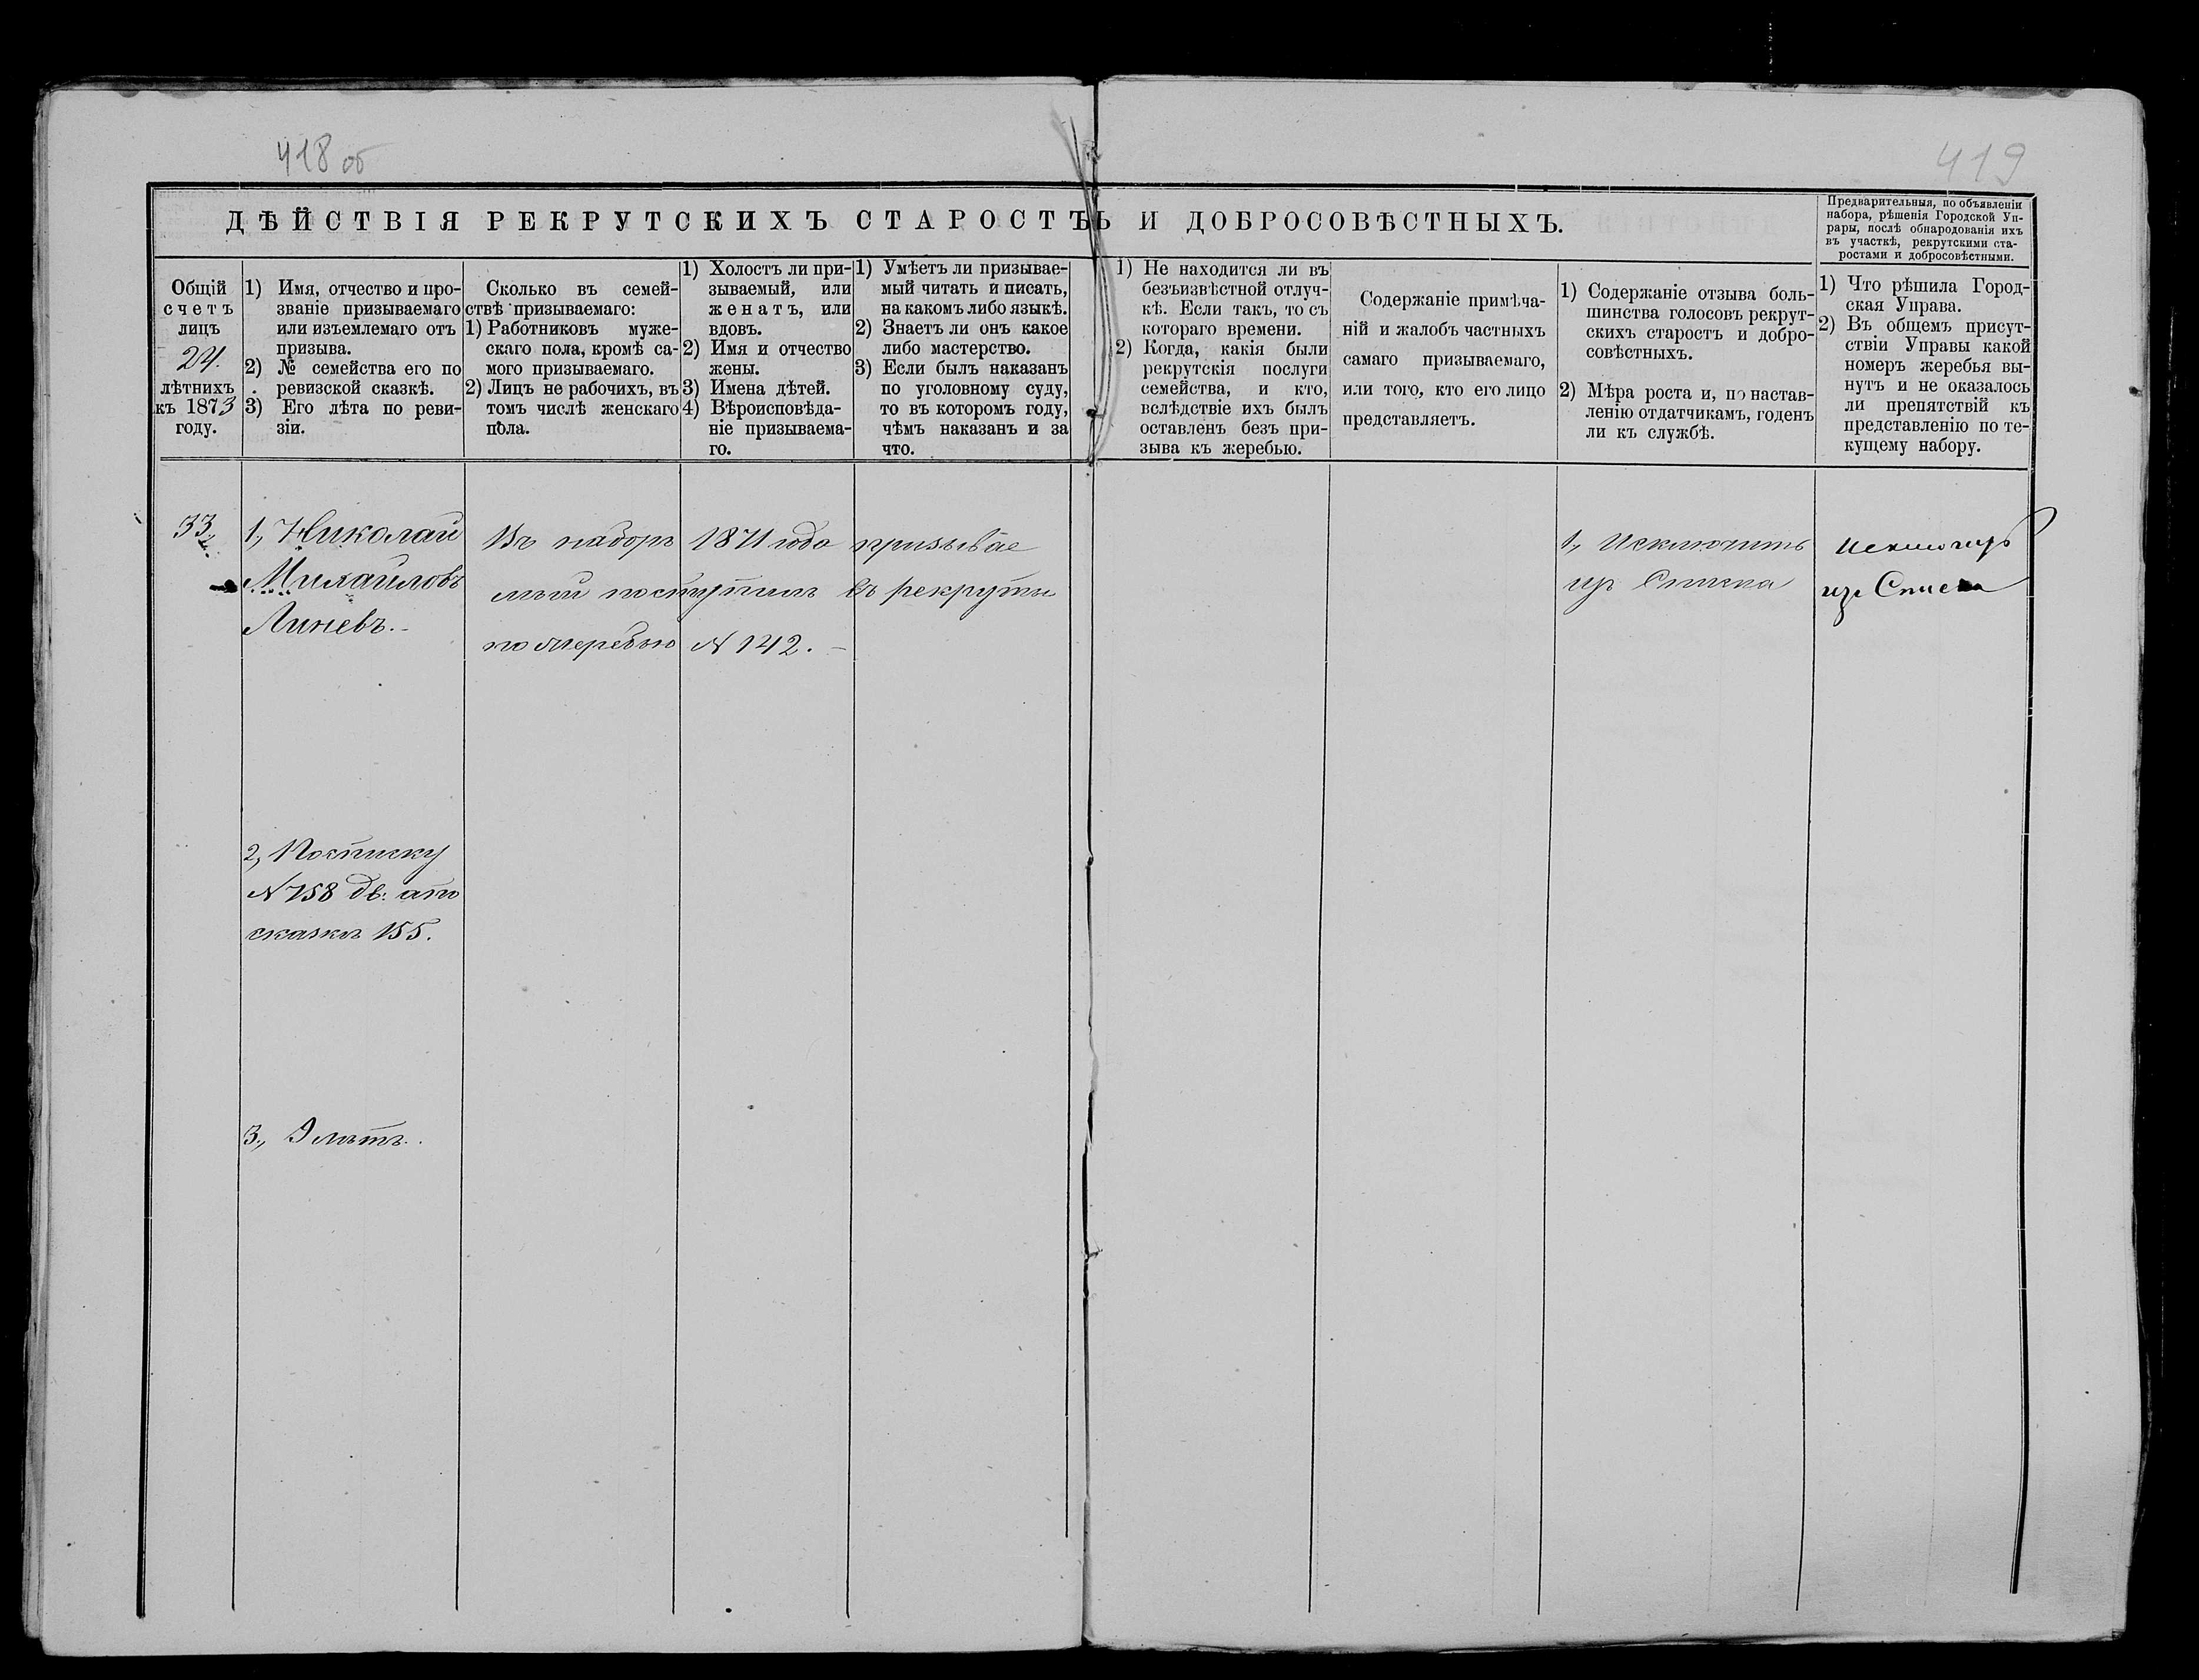 418 об
419
ДѢЙСТВІЯ РЕКРУТСКИХЪ СТАРОСТЪ И ДОБРОСОВѢСТНЫХЪ.
Предварительныя, по объявленіи
набора, рѣшенія Городской Уп-
рары, послѣ обнародованія ихъ
въ участкѣ, рекрутскими ста-
ростами и добросовѣстными.
Общій
счетъ
лицъ
24.
лѣтнихъ
къ 1873
году.
1) Имя, отчество и про-
званіе призываемаго
или изъемлемаго отъ
призыва.
2) № семейства его по
ревизской сказкѣ.
3) Его лѣта по реви-
зіи.
Сколько въ семей-
ствѣ призываемаго:
1) Работниковъ муже-
скаго пола, кромѣ са-
мого призываемаго.
2) Лицъ не рабочихъ, въ
томъ числѣ женскаго
пола.
1) Холостъ ли при-
зываемый, или
женатъ, или
вдовъ.
2) Имя и отчество
жены.
3) Имена дѣтей.
4) Вѣроисповѣда-
ніе призываема-
го.
1) Умѣетъ ли призывае-
мый читать и писать,
на какомъ либо языкѣ.
2) Знаетъ ли онъ какое
либо мастерство.
3) Если былъ наказанъ
по уголовному суду,
то въ которомъ году,
чѣмъ наказанъ и за
что.
1) Не находится ли въ
безъизвѣстной отлуч-
кѣ. Если такъ, то съ
котораго времени.
2) Когда, какія были
рекрутскія послуги
семейства, и кто,
вслѣдствіе ихъ былъ
оставленъ безъ при-
зыва къ жеребью.
Содержаніе примѣча-
ній и жалобъ частныхъ
самаго призываемаго,
или того, кто его лицо
представляетъ.
1) Содержаніе отзыва боль-
шинства голосовъ рекрут-
скихъ старостъ и добро-
совѣстныхъ.
2) Мѣра роста и, по настав-
ленію отдатчикамъ, годенъ
ли къ службѣ.
1) Что рѣшила Город-
ская Управа.
2) Въ общемъ присут-
ствіи Управы какой
номеръ жеребья вы-
нутъ и не оказалось
ли препятствій къ
представленію по те-
кущему набору.
33.
1, Николай
Михаиловъ
Линевъ.
Въ наборъ 1871 года призывае
мый поступилъ въ рекруты
по жеребью № 142.
1, Исключить
изъ Списка
Исключить
изъ Списка
2, Посписку
№ 758 дв:
сказкѣ 155.
3, 9 лѣтъ.